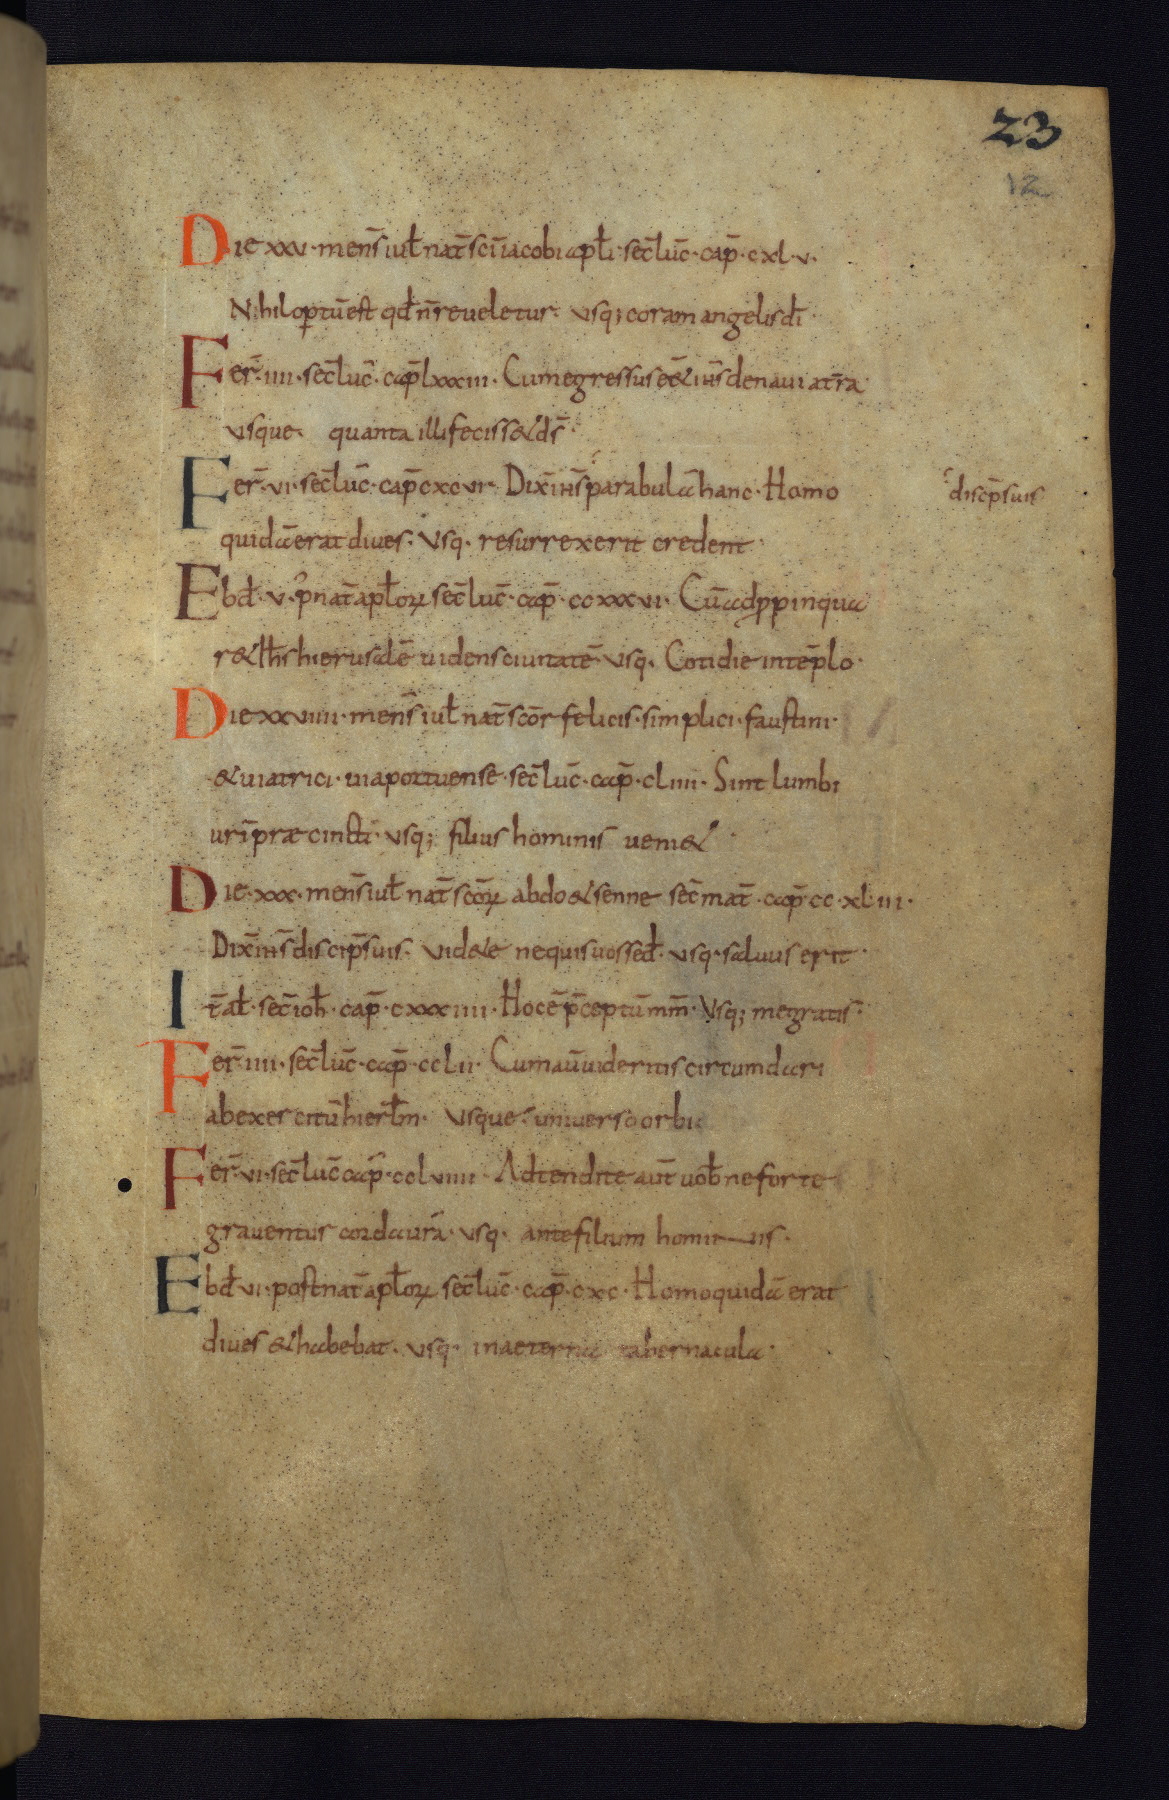 23
12
Die xxv· mens̄ iul̄ nat̄ sc̄i iacobi apl̄i· sec̄ luc̄· cap̄· cxl·v·
Nihil op̱tū est qđ n̄ reueletur· usq; coram angelis dī·
Fer̄· iiii· sec̄ luc̄· cap̄ lxxxiii· Cum egressus eē& ih̄s de naui at̄ra
usque· quanta illi feciss& ds̄·
Fer̄· vi· sec̄ luc̄· cap̄ cxcvi· Dix̄ ih̄s parabulā hanc· Homo
discip̄ suis
quidā erat diues· Vsq· resurrexerit credent·
Ebđ· v· p̄ nat̄ apl̄oꝝ sec̄ luc̄· cap̄· ccxxxvi· Cū adp̱pinqua
r& ih̄s hierusalē uidens ciuitatē· usq· Cotidie in tēplo·
Die xxviiii· mens̄ iul̄ nat̄ scōr felicis· simplici· faustini·
& uiatrici· uia portuense· sec̄ luc̄· cap̄· cliiii· Sint lumbi
ur̄i præcincti· usq; filius hominis ueni&·
Die· xxx· mens̄ iul̄ nat̄ scōꝝ abdo & senne sec̄ mat̄· cap̄· cc·xl·iii·
Dix̄ ih̄s discip̄ suis· uid&e ne quis uos seđ· usq· saluus erit·
It̄ al̄· sec̄ ioh̄· cap̄· cxxxiiii· Hoc ē p̄ceptū mm̄· Vsq; me gratis·
Fer̄· iiii· sec̄ luc̄· cap̄· cclii· Cum aū uideritis circumdari
ab exercitū hierl̄m· Vsque· uniuerso orbi·
Fer̄· vi· sec̄ luc̄ cap̄· cclviiii· Adtendite aut̄ uob̄ ne forte
grauentur corda ur̄a· usq· ante filium hominis·
Ebđ vi· post nat̄ apl̄oꝝ sec̄ luc̄· cap̄· cxc· Homo quidā erat
diues & habebat· usq· in aeterna tabernacula·